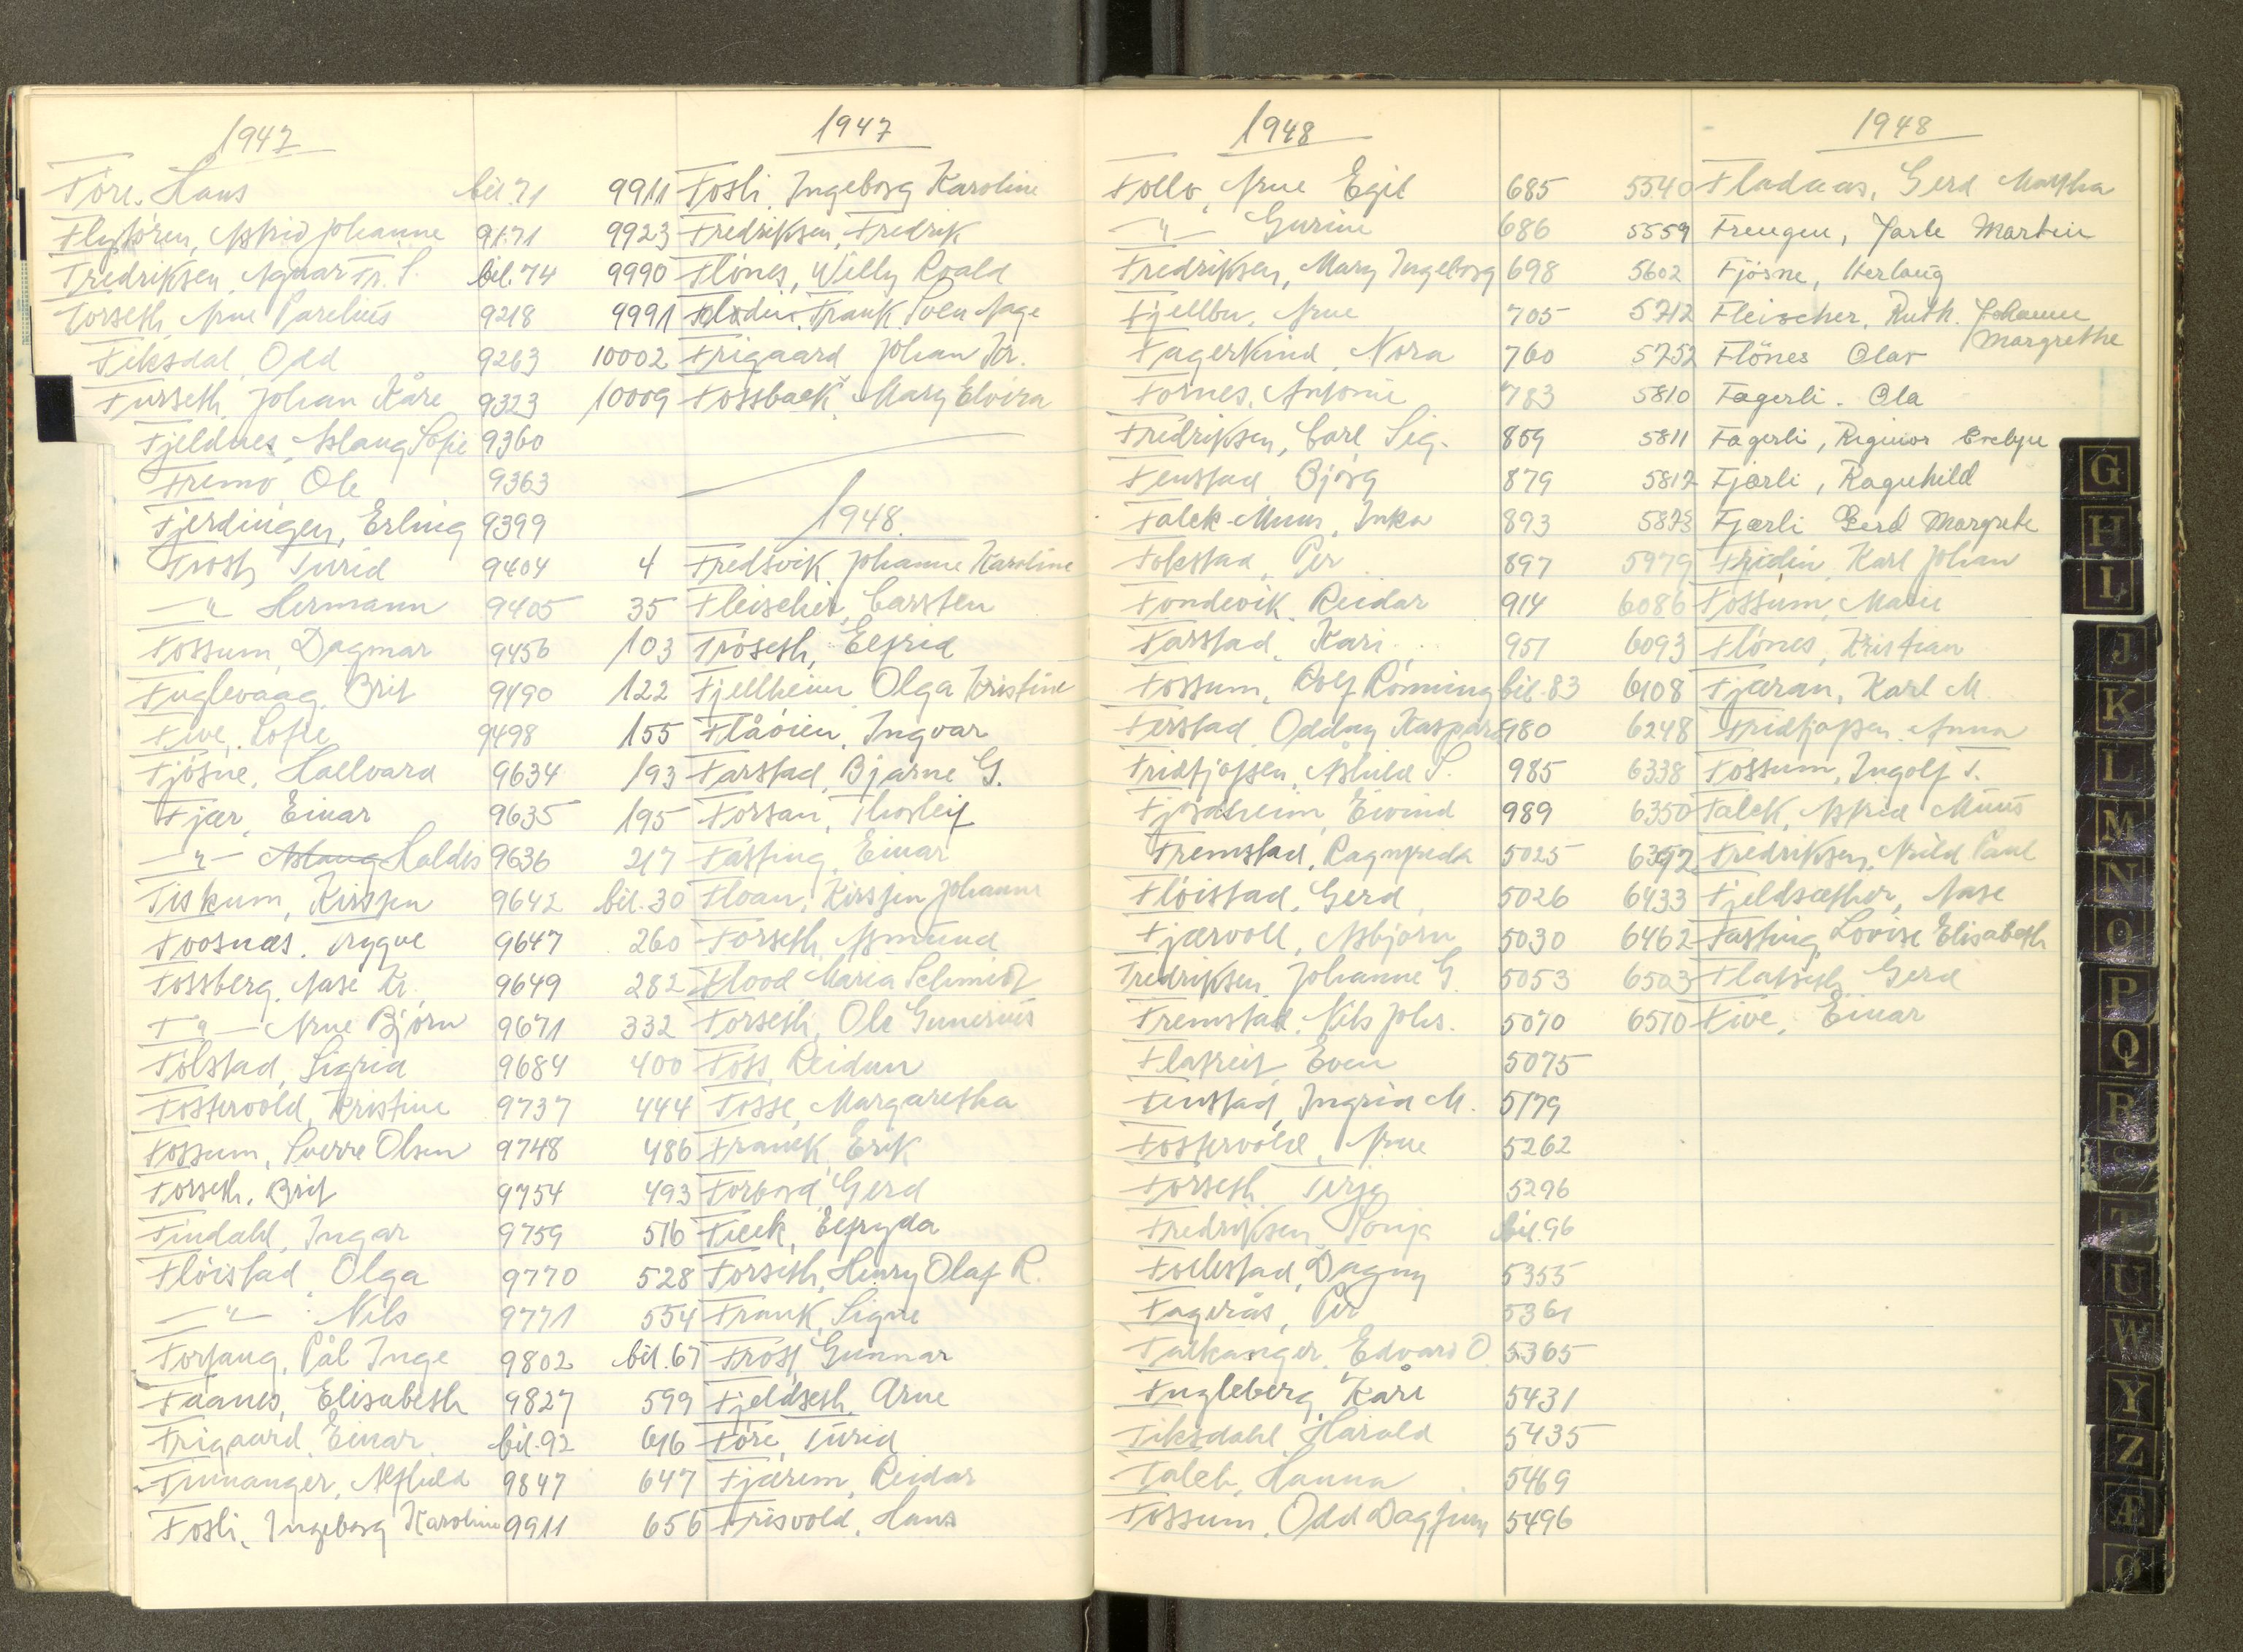 1947
Före, Hans bil. 71
Flytören, Astrid Johanne 91.71
Fredriksen, Agnar Fr. S. bil. 74
Forseth, Arne Parelius 9218
Fiksdal, Odd 9263
Furseth, Johan Kåre 9323
Fjeldnes, Aslaug Sofie 9360
Fremo, Ole 9363
Fjerdingen, Erling 9399
Frost, Turid 9404
—"— Hermann 9405
Fossum, Dagmar 9456
Fuglevaag, Brit 9490
Five, Sofie 9498
Fjösne, Hallvard 9634
Fjær, Einar 9635
—"— Aslaug Haldis 9636
Fiskum, Kirsten 9642
Foosnæs, Trygve 9647
Fossberg, Aase Kr. 9649
—"— Arne Björn 9671
Folstad, Sigrid 9684
Fostervold, Kristine 9737
Fossum, Sverre Olsen 9748
Forseth, Brit 9754
Findahl, Ingar 9759
Flöistad Olga 9770
—"— Nils 9771
Forfang, Pål Inge 9802
Faanes, Elisabeth 9827
Frigaard, Einar bil. 92
Finnanger, Alfhild 9847
Fosli, Ingeborg Karoline 9911
1947
9911 Fosli, Ingeborg Karoline
9923 Fredriksen, Fredrik
9990 Flönes, Willy Roald
9991 Flodin, Frank Sven Aage
10002 Frigaard Johan Kr.
10009 Fossbæk, Mary Elvira
1948
4 Fredsvik, Johanne Karoline
35 Fleischer, Carsten
103 Fröseth, Elfrid
122 Fjellheim Olga Kristine
155 Flåöien, Ingvar
193 Farstad, Bjarne G.
195 Forsan, Thorleif
217 Fasting, Einar
bil. 30 Floan, Kirsten Johanne
260 Forseth, Asmund
282 Flood Maria Schmidt
332 Forseth, Ole Gunerius
400 Foss, Reidun
444 Fosse, Margaretha
486 Franck, Erik
493 Forbord, Gerd
516 Fleck, Elfryda
528 Forseth, Henry Olaf R.
554 Frank, Signe
bil. 67 Frost, Gunnar
599 Fjeldseth, Arne
616 Före, Turid
647 Fjærem, Reidar
656 Frisvold, Hans
1948
Follo, Arne Egil 685
—"— Gurine 686
Fredriksen, Mary Ingeborg 698
Fjellbu, Arne 705
Fagerkind, Nora 760
Fornes, Antonie 783
Fredriksen, Carl Sig. 859
Fenstad, Björg 879
Falck-Muus, Inka 893
Fokstad, Per 897
Fondevik, Reidar 914
Farstad, Kari 951
Fossum, Rolf Rönning bil. 83
Ferstad, Oddny Kaspara 980
Fridtjofsen, Åshild S. 985
Fjordheim, Eivind 989
Fremstad, Ragnfrida 5025
Flöistad, Gerd 5026
Fjærvoll, Asbjörn 5030
Fredriksen, Johanne G. 5053
Fremstad, Nils Johs. 5070
Flatreit, Even 5075
Fenstad, Ingrid M. 5179
Fostervold, Arne 5262
Forseth, Terje 5296
Fredriksen, Sonja bil. 96
Follestad, Dagny 5355
Fagerås, Per 5361
Farkanger, Edvard O. 5365
Fugleberg, Kåre 5431
Fiksdahl, Harald 5435
Falch, Hanna 5469
Fossum, Odd Dagfinn 5496
1948
5540 Fladaas, Gerd Martha
5559 Frengen, Jarle Martin
5602 Fjösne, Herlaug
5712 Fleischer, Ruth. Johanne
Margrethe
5752 Flönes Olav
5810 Fagerli. Ola
5811 Fagerli, Rigmor Evelyn
5812 Fjærli, Ragnhild
5873 Fjærli Gerd Margrete
5979 Fridin, Karl Johan
6086 Fossum, Marie
6093 Flönes, Kristian
6108 Fjæran, Karl M.
6248 Fridtjofsen, Anna
6338 Fossum, Ingolf T.
6350 Falck, Astrid Muus
6392 Fredriksen, Arild Paul
6433 Fjeldsæther, Aase
6462 Fasting, Lovise Elisabeth
6503 Flatseth, Gerd
6510 Five, Einar
G
H
I
J
K
L
M
N
O
P
Q
R
S
T
U
W
Y
Z
Æ
Ø